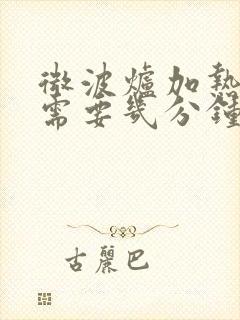 微波爐加熱
需要幾分鐘
古麗巴